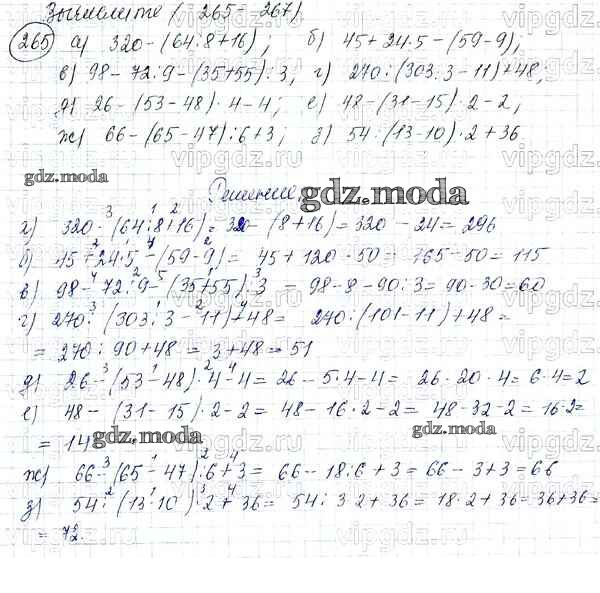 Вычислите (265-267)
265 а) 320-(64:8+16); б) 45+24·5-(59-9);
в) 98-72:9-(35+55):3; г) 270:(303:3-11)+48;
д) 26-(53-48)·4-4; е) 48-(31-15)·2-2;
ж) 66-(65-47):6+3; з) 54:(13-10)·2+36
Решение.
gdz.moda
gdz.moda
а) 320-(64:8+16)=320-(8+16)=320-24=296
б) 45+24·5-(59-9)= 45+120-50=165-50=115
в) 98-72:9-(35+55):3 = 98-8-90:3=90-30=60
г) 270:(303:3-11)+48= 270:(101-11)+48=
= 270:90+48=3+48=51
д) 26-(53-48)·4-4=26-5·4-4= 26·20·4=6·4=2
е) 48-(31-15)·2-2=48-16·2-2= 48-32-2=16-2=
= 14
gdz.moda
gdz.moda
ж) 66-(65-47):6+3= 66-18:6+3=66-3+3=66
з) 54:(13-10)·2+36= 54:3·2+36=18·2+36=36+36=
= 72.